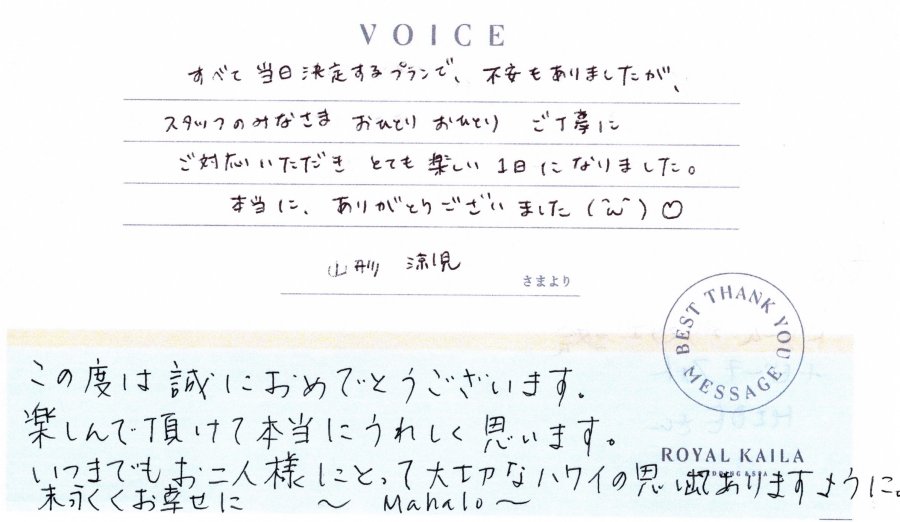 VOICE
すべて当日決定するプランで、不安もありましたが、
スタッフのみなさま おひとりおひとり ご丁寧に
ご対応いただき とても楽しい 1日になりました。
本当に、ありがとうございました(^ω^)♡
山形 涼児
さまより
BEST THANK YOU MESSAGE
この度は誠におめでとうございます。
楽しんで頂けて本当にうれしく思います。
ROYAL KAILA
WEDDING & SPA
いつまでもお二人様にとって大切なハワイの思い出でありますように。
末永くお幸せに 〜 Mahalo〜